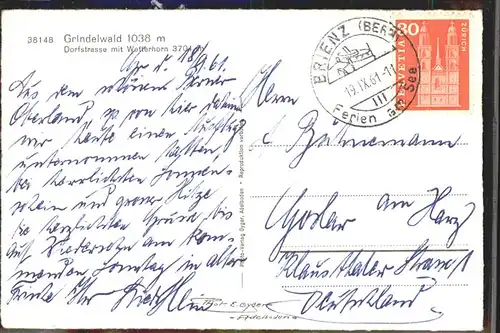 36148 Grindelwald 1038 m
Dorfstrasse mit Wetterhorn 3701 m
18/9 61.
Aus dem schönen Berner
Oberland, wo von hier
wir heute einen Ausflug
unternommen hatten,
bei herrlichstem Sonnen-
schein und grosser Hitze
die herzlichsten Grüsse, bis
auf Wiedersehn am kom-
menden Sonntag in alter
Frische Ihr
Photo-Verlag Gyger, Adelboden - Reproduktion verboten
Phot. E. Gyger
Adelboden
BRIENZ (BERN)
19.IX.61.-11
Ferien am See
30
HELVETIA
ZÜRICH
Herrn
Goslar am Harz
Klaustaler Strasse 1
Deutschland